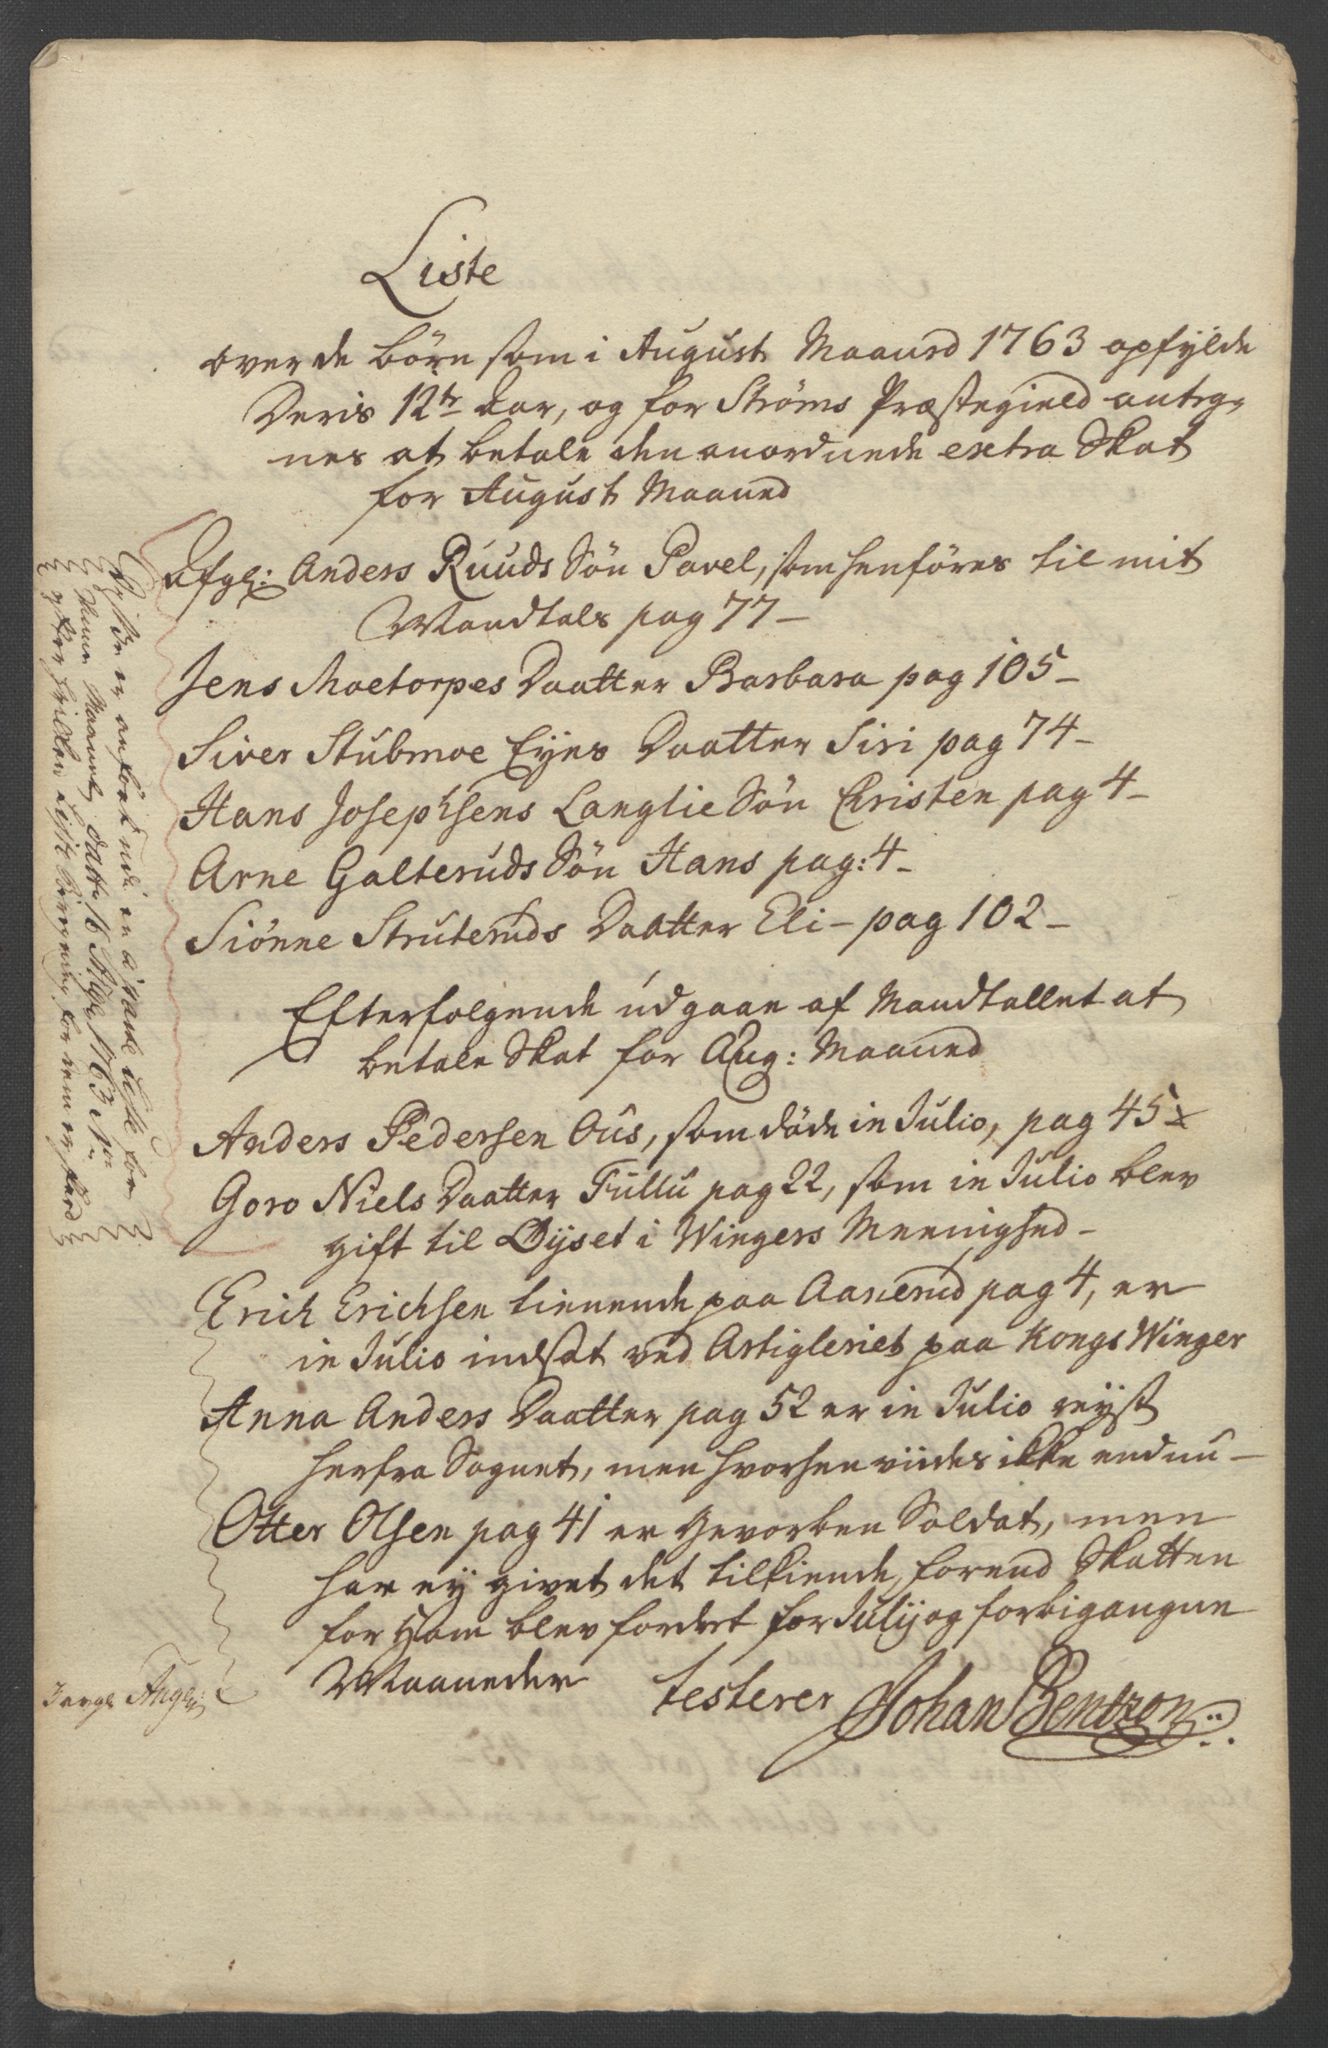 Liste
over de börn som i August Maaned 1763 opfylde
Deris 12te Aar, og for Ströms Præstegield anteg-
nes at betale den anordnede extra Skat
for August Maaned
Afgl: Anders Ruuds Sön Povel, som henföres til mit
Mandtals pag 77 –
Jens Moetorpes Daatter Barbara pag 105 –
Siver Stubmoe Eyes Daatter Siri pag 74 –
Hans Josephsens Langlie Sön Christen pag 4 –
Arne Galteruds Sön Hans pag: 4 –
Siönne Struteruds Daatter Eli – pag 102 –
Efterfolgende udgaar af Mandtallet at
betale Skat for Aug: Maaned
Anders Pedersen Ous, som döde in Julio, pag 45
Goro Niels Daatter Fullu pag 22, som in Julio blev
gift til Öyset i Wingers Meenighed –
Erich Erichsen tienende paa Aaserud pag 4, er
in Julio indsat ved Artigleriet paa Kongs Winger
Anna Anders Daatter pag 52 er in Julio reyst
herfra Sognet, men hvorhen viides ikke endnu –
Otter Olsen pag 41 er Gevorben Soldat, men
har ey givet det tilkiende, forend Skatten
for Ham blev fordret for Julij og forbigangne
Maaneder testerer Johan Bentzon
Disse er anfört udi en a parte Liste for
Maaned, dat: 16 1763
efter hvilken Liste for dem er